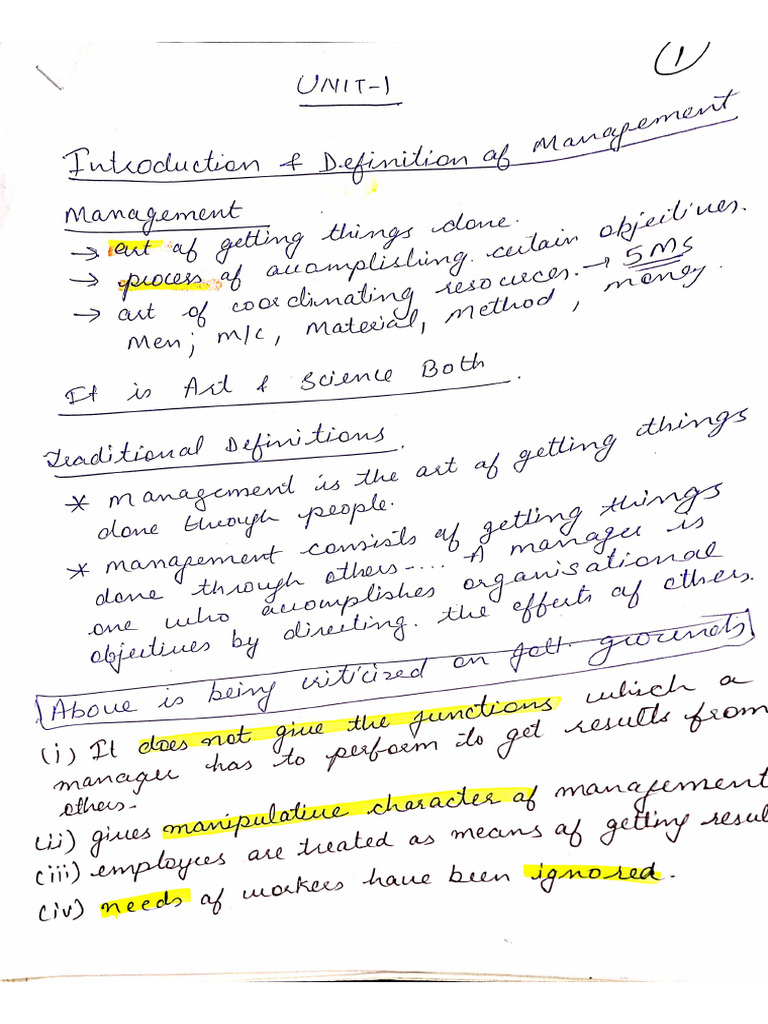 1
UNIT-1
Introduction & Definition of Management
Management
→ art of getting things done.
→ process of accomplishing certain objectives.
→ art of coordinating resources. → 5Ms
Men; M/C, Material, Method, money.
It is Art & Science Both.
Traditional Definitions.
* Management is the art of getting things
done through people.
* Management consists of getting things
done through others..... A manager is
one who accomplishes organisational
objectives by directing the efforts of others.
Above is being criticized on foll. grounds
(i) It does not give the functions which a
manager has to perform to get results from
others.
(ii) gives manipulative character of management
(iii) employees are treated as means of getting resul
(iv) needs of workers have been ignored.